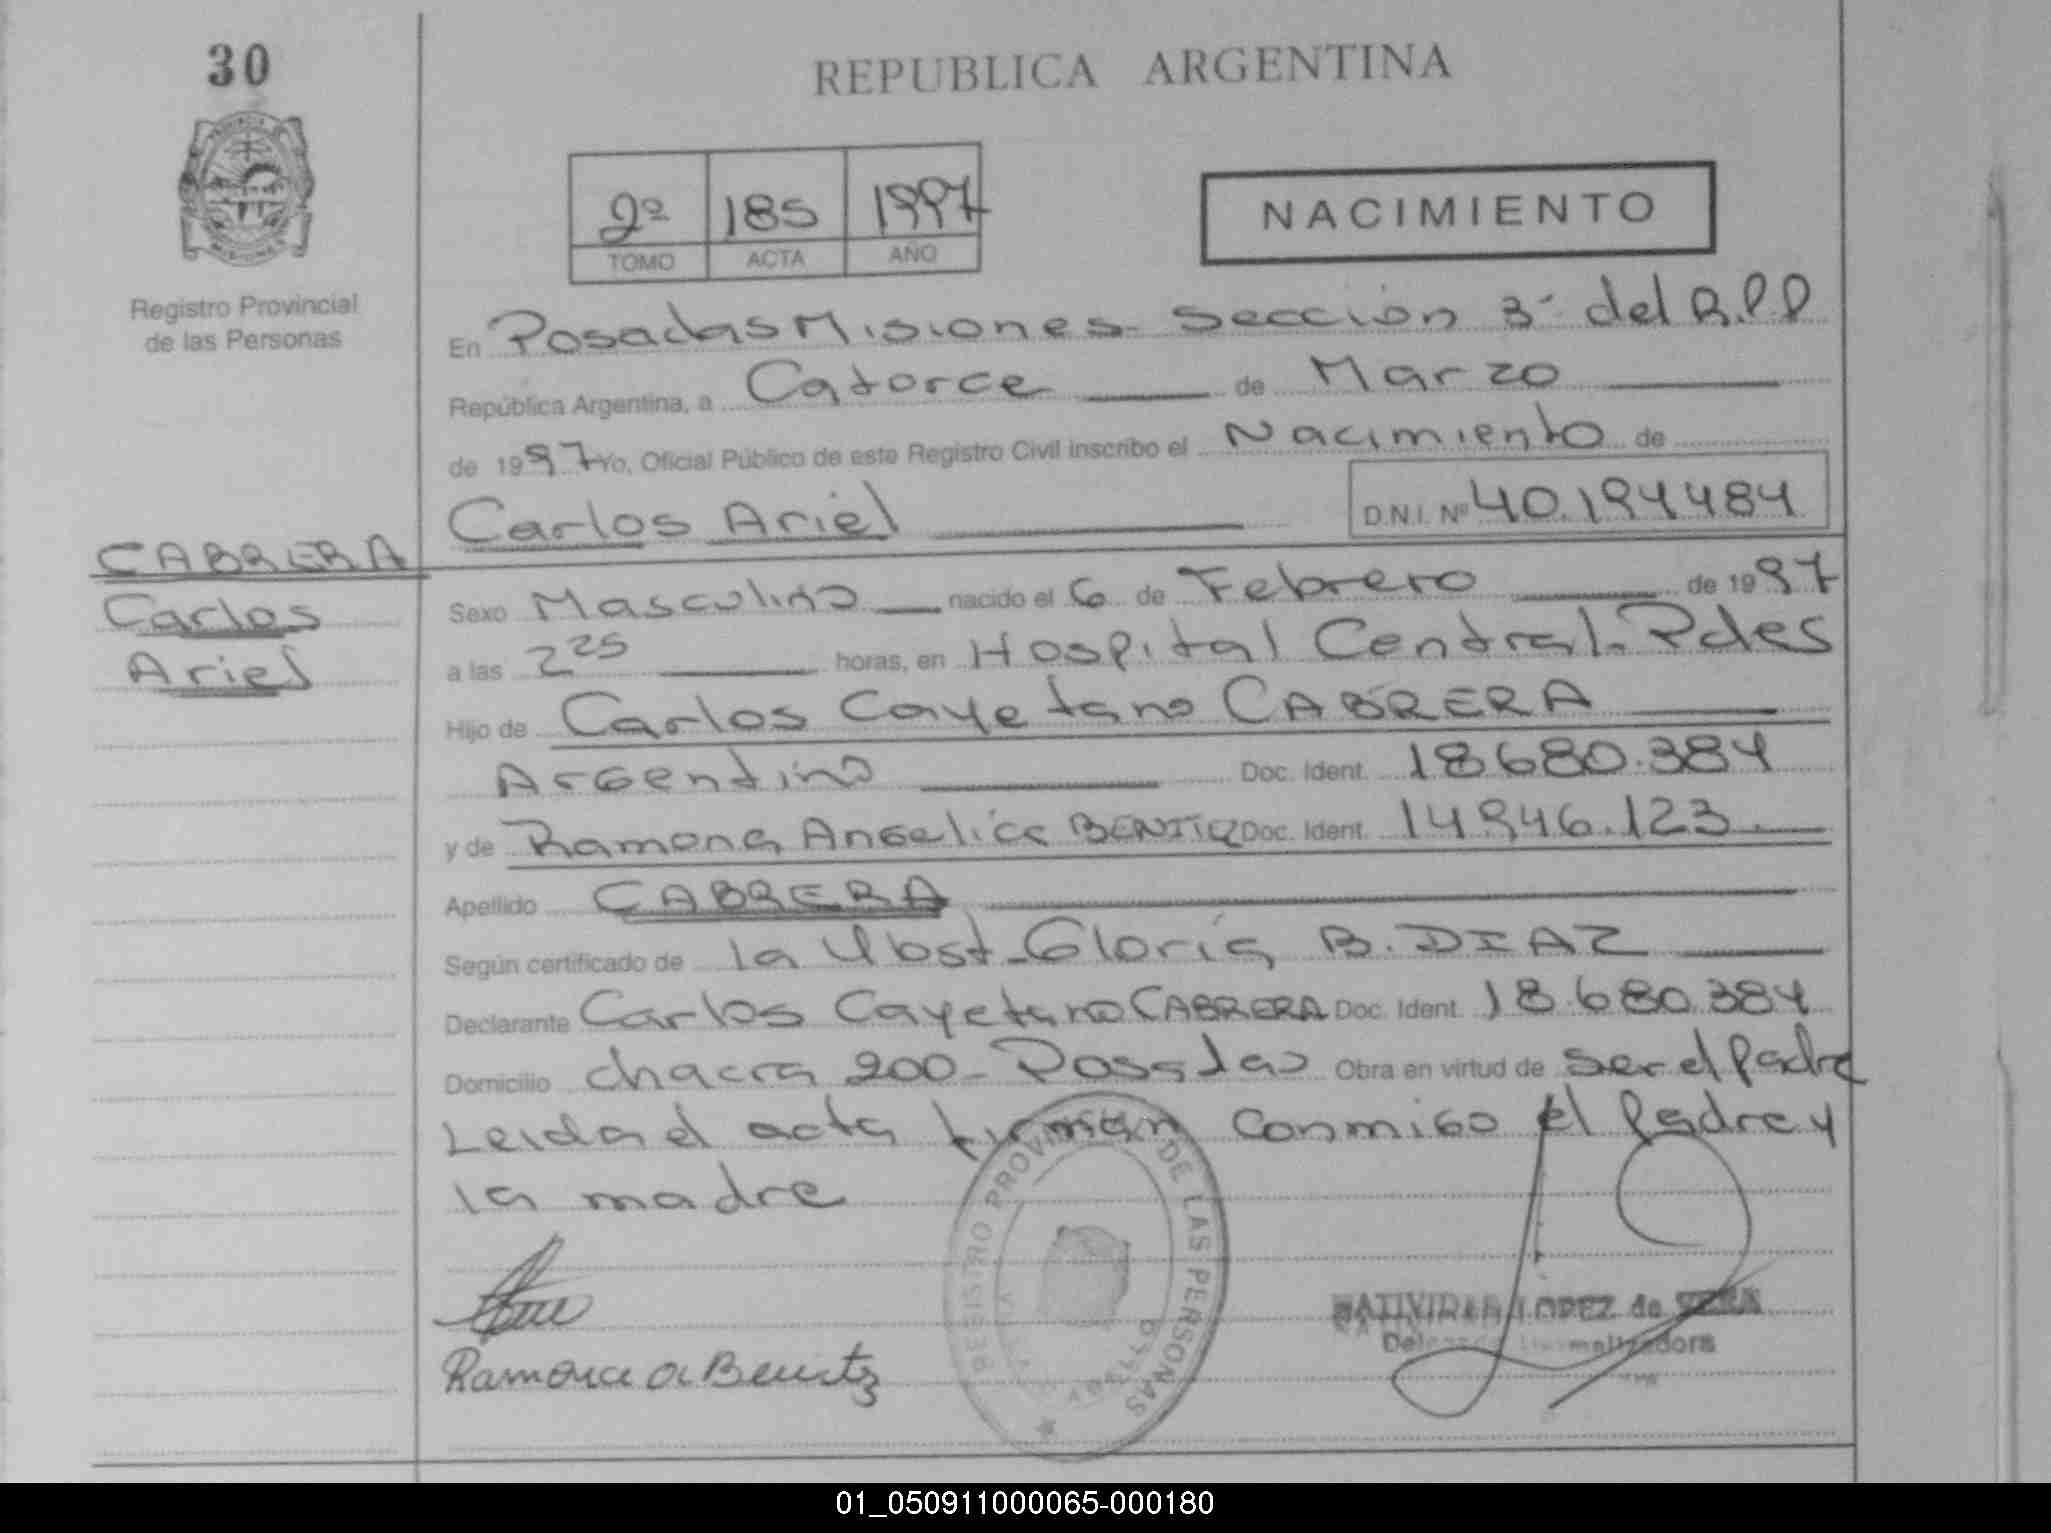 30
REPUBLICA ARGENTINA
2º 185 1997
TOMO ACTA AÑO
NACIMIENTO
Registro Provincial
de las Personas
En Posadas Misiones - Sección 3ª del R.P.P
República Argentina, a Catorce de Marzo
de 1997 Yo, Oficial Público de este Registro Civil inscribo el Nacimiento de
Carlos Ariel D.N.I. Nº 40.194484
CABRERA
Carlos
Ariel
Sexo Masculino nacido el 6 de Febrero de 1997
a las 2 25 horas, en Hospital Central - Pdas
Hijo de Carlos Cayetano CABRERA
Argentino Doc. Ident. 18680.384
y de Ramona Angelica Doc. Ident. 14.946.123
Apellido CABRERA
Según certificado de la Obst - Gloria B. DIAZ
Declarante Carlos Cayetano CABRERA Doc. Ident. 18.680.384
Domicilio chacra 200 - Posadas Obra en virtud de ser el Padre
Leida el acta firman conmigo el Padre y
la madre
Ramona a Benitz
REGISTRO PROVINCIAL DE LAS PERSONAS
LOPEZ de
01_050911000065-000180